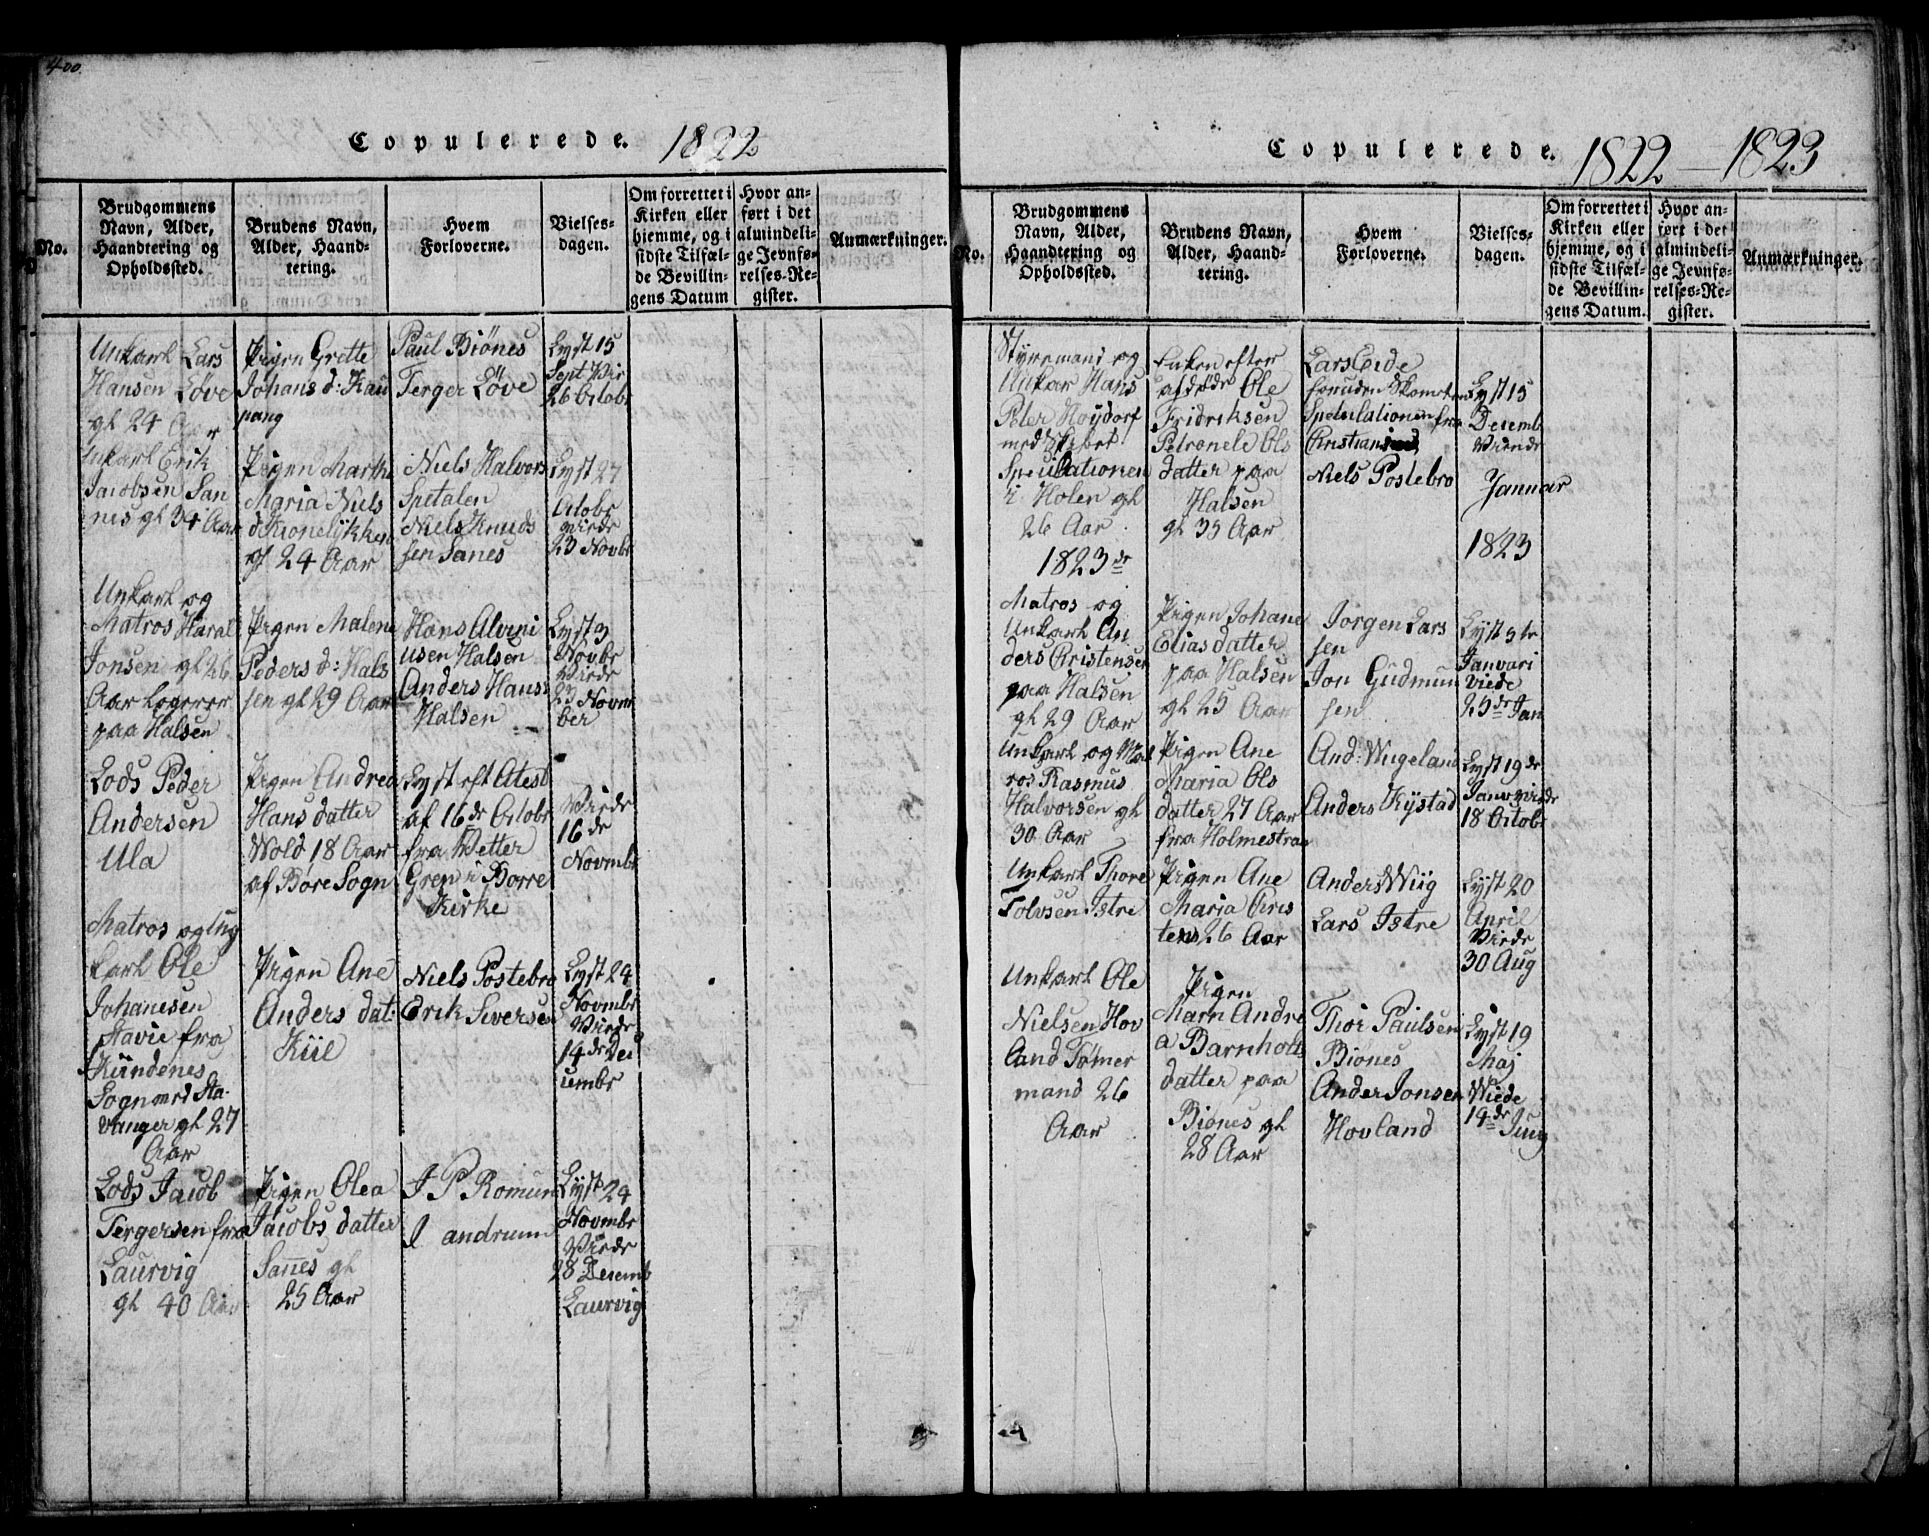 400
Copulerede. 1822
No.
Brudgommens
Navn, Alder,
Haandtering og
Opholdssted.
Brudens Navn,
Alder, Haand-
tering.
Hvem
Forloverne.
Vielses-
dagen.
Om forrettet i
Kirken eller
hjemme, og i
sidste Tilfæl-
de Bevillin-
gens Datum
Hvor an-
ført i det
almindeli-
ge Jevnfø-
relses-Re-
gister.
Anmærkninger.
Unkarl Lars
Hansen Løve
gl 24 Aar
Pigen Grette
Johans d: Kau
pang
Paul Biönes
Terger Löve
Lyst 15
Sept Vie
26 Octobr
unkarl Erik
Jacobsen San
nes gl 34 Aar
Pigen Marthe
Maria Niels
d Kronelykken
gl 24 Aar
Niels Halvors
Spetalen
Niels Knuds
sen Sanes
Lyst 27
Octobr
viede
23 Novbr
Unkarl og
Matros Haral
Jonsen gl 26
Aar Logerer
paa Halsen
Pigen Malene
Peders d: Hals
sen gl 29 Aar
Hans Alveni
usen Halsen
Anders Hans
Halsen
Lyst 3
Novbr
Viede
23 Novm
ber
Lods Peder
Andersen
Ula
Pigen Andrea
Hans datter
Wold 18 Aar
af Børe Sogn
Lyst eft Atest
af 16de Octobr
fra Vetter
Gren i Borre
Kirke
Viede
16 de
Novmbr
Matros og Ung
karl Ole
Johanesen
Stavie fra
Kündenes
Sogn ved Sta-
vanger gl 27
Aar
Pigen Ane
Anders dat:
Kiil
Niels Postebro
Erik Siversen
Lyst 24
Novmbr
Viede
14de Dec
cembr
Lods Jacob
Tergersen fra
Laurvig
gl 40 Aar
Pigen Olea
Jacobs datter
Sanes gl
25 Aar
J P Romun
J andrum
Lyst 24
Novmbr
Viede
28 Decemb
Laurvig
Copulerede. 1822 — 1823
No.
Brudgommens
Navn, Alder,
Haandtering og
Opholdssted.
Brudens Navn,
Alder, Haand-
tering.
Hvem
Forloverne.
Vielses-
dagen.
Om forrettet i
Kirken eller
hjemme, og i
sidste Tilfæl-
de Bevillin-
gens Datum.
Hvor an-
ført i det
almindeli-
ge Jevnfø-
relses-Re-
gister.
Anmærkninger.
Styremand og
Unkar Hans
Peter Høydorf
med Skibet
Speculationen
i Holen gl
26 Aar
Enken efter
afdøde Ole
Fridriksen
Petronele Ols
datter paa
Halsen
gl 35 Aar
Lars Eide
Speculationen fra
Christiania
Niels Postebro
Lyst 15
Decemb
Viende
Januar
1823
1823 de
Matros og
Unkarl An
ders Cristensen
paa Halsen
gl 29 Aar
Pigen Johane
Elias datter
paa Halsen
gl 25 Aar
Jorgen Lars
sen
Jon Gudmun
sen
Lyst 5te
Januari
Viede
25de Jan
Unkarl og Mat
ros Rasmus
Halvorsen gl
30 Aar
Pigen Ane
Maria Ols
datter 27 Aar
fra Holmestran
And: Wugeland
Anders Kystad
Lyst 19de
Janu viede
18 Octobr
Unkarl Thore
Tolvsen Istre
Pigen Ane
Maria Cris
tens 26 Aar
Anders Wiig
Lars Istre
Lyst 20
April
Viede
30 Aug
Unkarl Ole
Nielsen Hov
land Tømer
mand 26
Aar
Pigen
Marn Andre
a Barnholts
datter paa
Biönes gl
28 Aar
Thor Paulsen
Biönes
Ander Jonsen
Hovland
Lyst 19
Maj
Wiede
19de Juny